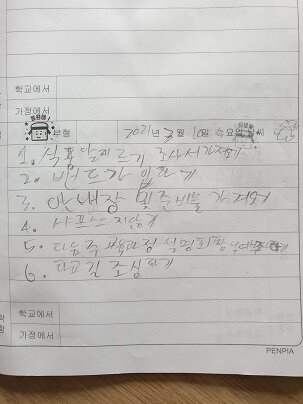 학교에서
가정에서
부형 2021년 3월 10일 수요일 날씨
1. 식품알레르기 조사서가져오기
2. 밴드가입하기
3. 안내장 및 준비물 가져오기
4. 샤프쓰지않기
5. 다음주 교육과정 설명회참
6. 하교길 조심하게
학교에서
가정에서
PENPIA